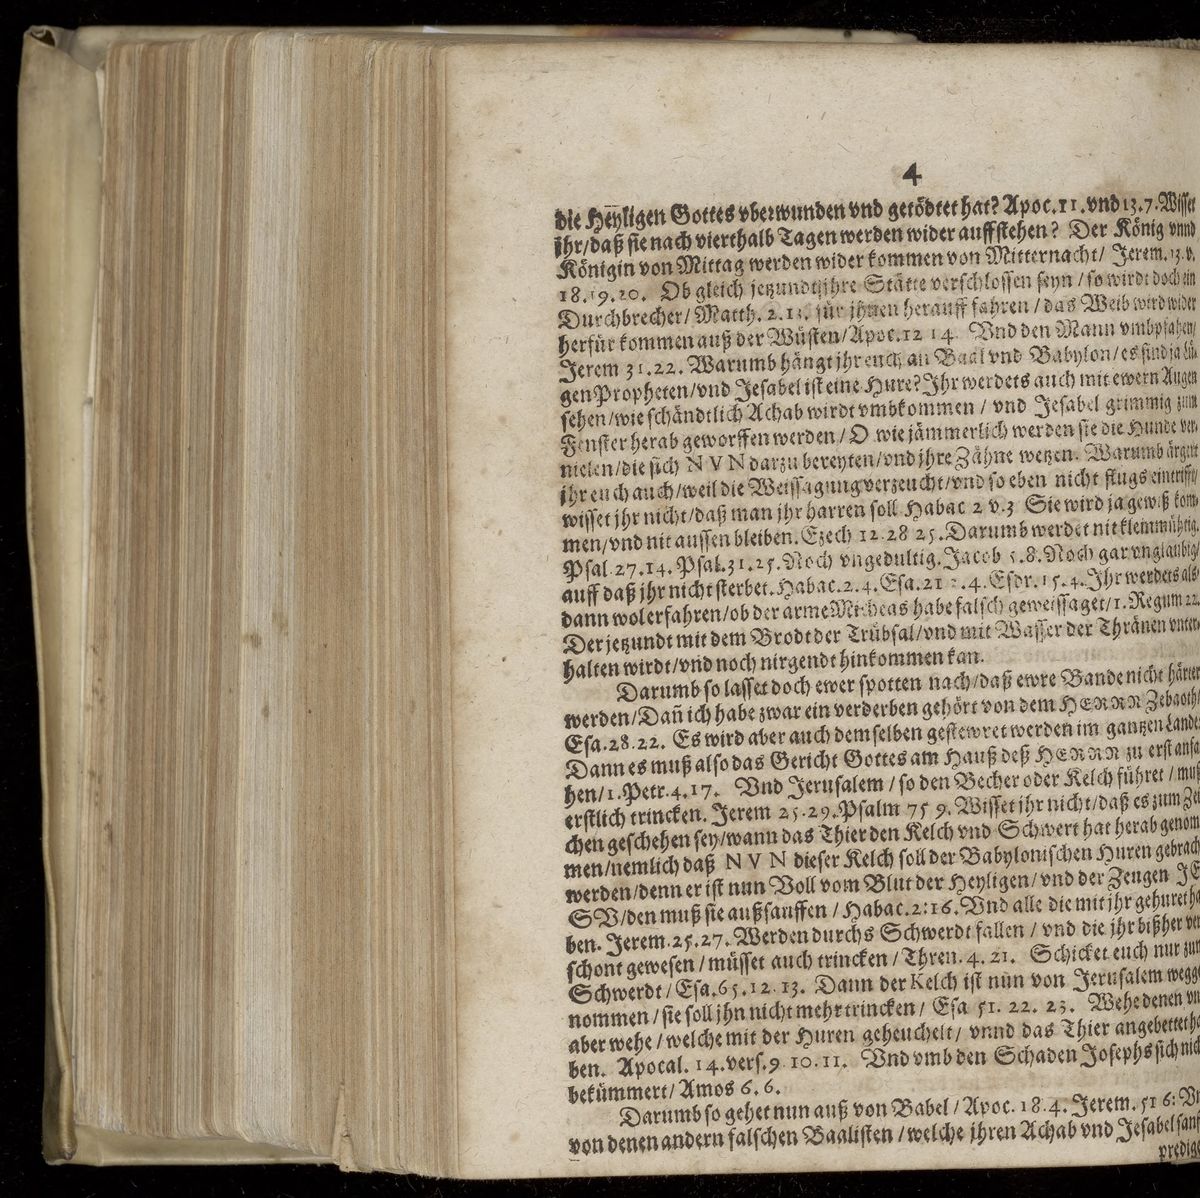 4
die Heyligen Gottes vberwunden vnd getödtet hat? Apoc. 11. vnd 13. 7. Wisset
jhr/daß sie nach vierthalb Tagen werden wider aufferstehen? Der König vnnd
Königin von Mittag werden wider kommen von Mitternacht/ Jerem. 13. v.
18. 19. 20. Ob gleich jetzundt jhre Stätte verschlossen seyn / so wirdt doch ein
Durchbrecher/ Matth. 2. 13. für jhnen herauff fahren / das Weib wird wider
herfür kommen auß der Wüsten/ Apoc. 12 14. Vnd den Mann vmbpfahen/
Jerem 31. 22. Warumb hängt jhr euch an Baal vnd Babylon/ es sind ja Lü-
gen Propheten/vnd Jesabel ist eine Hure? Jhr werdets auch mit ewern Augen
sehen/wie schändtlich Achab wirdt vmbkommen / vnd Jesabel grimmig zum
Fenster herab geworffen werden/ O wie jämmerlich werden sie die Hunde
nielen/die sich NVN darzu bereyten/vnd jhre Zähne wetzen. Warumb ärgert
jhr euch auch/weil die Weissagung verzeucht/vnd so eben nicht flugs eintrifft/
wisset jhr nicht/daß man jhr harren soll Habac 2 v. 3 Sie wird ja gewiß kom-
men/vnd nit aussen bleiben. Ezech 12. 28 25. Darumb werdet nit kleinmühtig.
Psal. 27. 14. Psal. 31. 25. Noch vngedultig. Jacob 5. 8. Noch gar vnglaubig/
auff daß jhr nicht sterbet. Habac. 2. 4. Esa. 21 . 4. Esdr. 15. 4. Jhr werdets als-
dann wol erfahren/ob der arme Micheas habe falsch geweissaget/ 1. Regum 22.
Der jetzundt mit dem Brodt der Trübsal/vnd mit Wasser der Thränen vnter-
halten wirdt/vnd noch nirgendt hinkommen kan.
Darumb so lasset doch ewer spotten nach/daß ewre Bande nicht härter
werden/Dañ ich habe zwar ein verderben gehört von dem HERRN Zebaoth/
Esa. 28. 22. Es wird aber auch demselben gestewret werden im gantzen Lande
Dann es muß also das Gericht Gottes am Hauß deß HERRN zu erst anfa
hen/ 1. Petr. 4. 17. Vnd Jerusalem / so den Becher oder Kelch führet / muß
erstlich trincken. Jerem 25. 29. Psalm 75 9. Wisset jhr nicht/daß es zum Zei
chen geschehen sey/wann das Thier den Kelch vnd Schwert hat herab genom
men/nemlich daß NVN dieser Kelch soll der Babylonischen Huren gebrach
werden/denn er ist nun Voll vom Blut der Heyligen/vnd der Zeugen JE
SV/den muß sie außsauffen / Habac. 2: 16. Vnd alle die mit jhr gehuret ha
ben. Jerem. 25. 27. Werden durchs Schwerdt fallen / vnd die jhr bißher ver
schont gewesen / müsset auch trincken / Thren. 4. 21. Schicket euch nur zum
Schwerdt / Esa. 65. 12. 13. Dann der Kelch ist nun von Jerusalem wegge
nommen / sie soll jhn nicht mehr trincken / Esa 51. 22. 23. Wehe denen vn
aber wehe / welche mit der Huren geheuchelt/ vnnd das Thier angebettet ha
ben. Apocal. 14. vers. 9 10. 11. Vnd vmb den Schaden Josephs sich nich
bekümmert/ Amos 6. 6.
Darumb so gehet nun auß von Babel / Apoc. 18. 4. Jerem. 51 6: Vn
von denen andern falschen Baalisten / welche jhren Achab vnd Jesabel sanf
predige